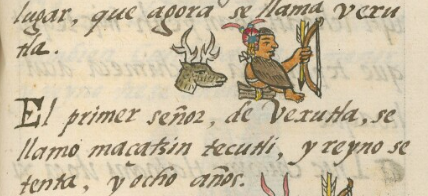 lugar, que agora se llama vexu
tla.
El primer señor, de Vexutla, se
llamo macatzin tecutli, y reyno se
tenta, y ocho años.